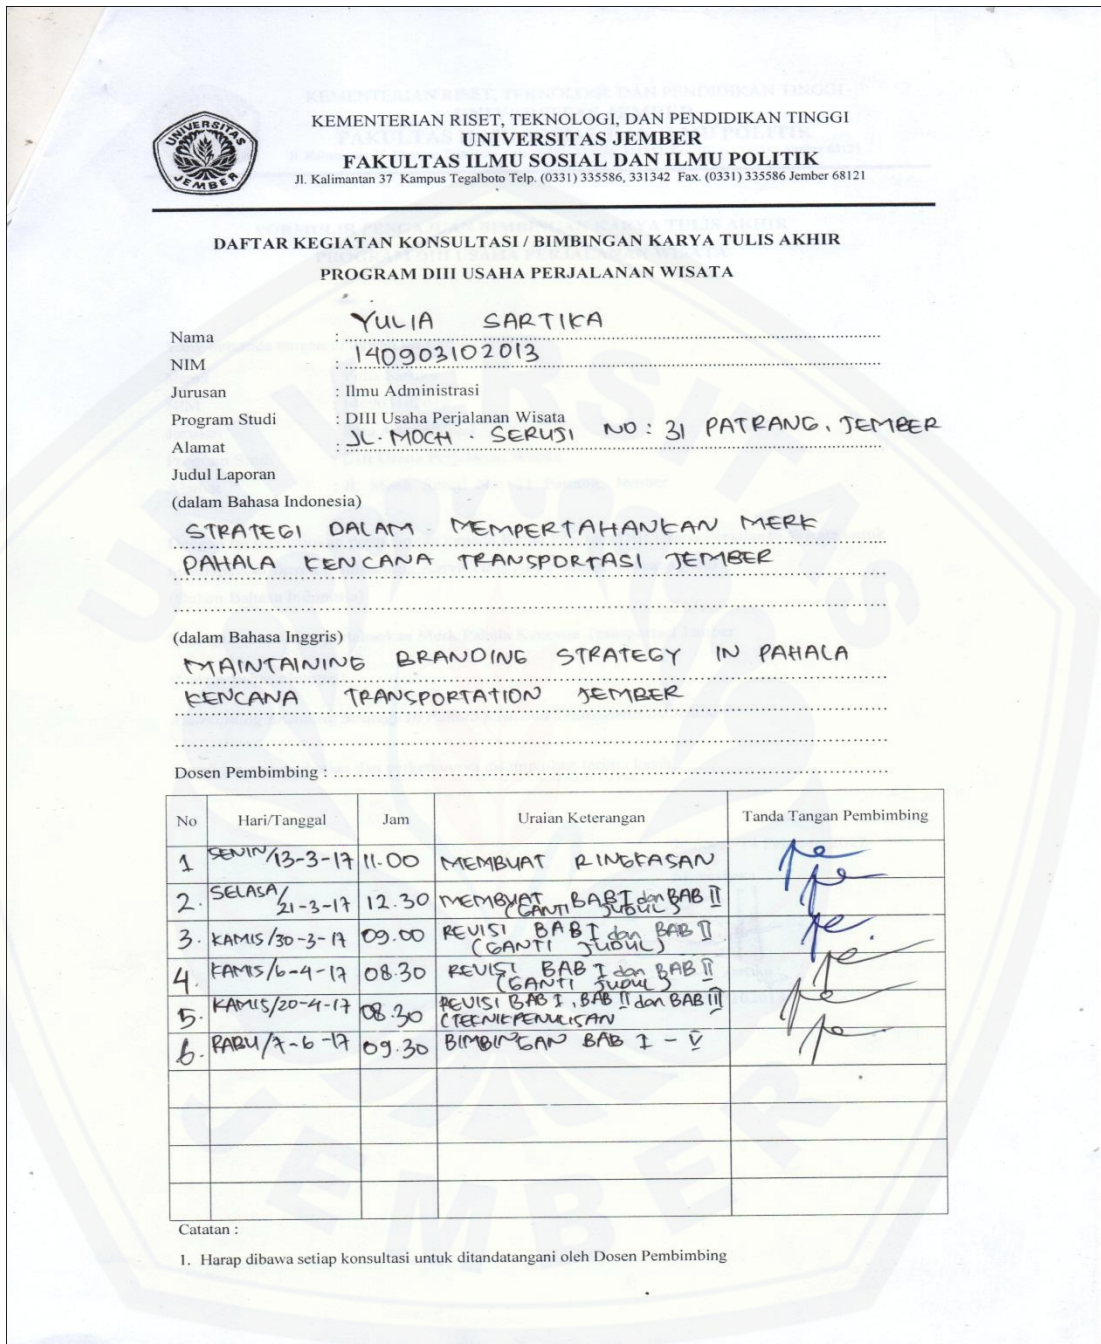 UNIVERSITAS
JEMBER
KEMENTERIAN RISET, TEKNOLOGI, DAN PENDIDIKAN TINGGI
UNIVERSITAS JEMBER
FAKULTAS ILMU SOSIAL DAN ILMU POLITIK
Jl. Kalimantan 37 Kampus Tegalboto Telp. (0331) 335586, 331342 Fax. (0331) 335586 Jember 68121
DAFTAR KEGIATAN KONSULTASI / BIMBINGAN KARYA TULIS AKHIR
PROGRAM DIII USAHA PERJALANAN WISATA
Nama : YULIA SARTIKA
NIM : 140903102013
Jurusan : Ilmu Administrasi
Program Studi : DIII Usaha Perjalanan Wisata
Alamat : JL. MOCH. SERUJI NO : 31 PATRANG, JEMBER
Judul Laporan
(dalam Bahasa Indonesia)
STRATEGI DALAM MEMPERTAHANKAN MERK
PAHALA KENCANA TRANSPORTASI JEMBER
(dalam Bahasa Inggris)
MAINTAINING BRANDING STRATEGY IN PAHALA
KENCANA TRANSPORTATION JEMBER
Dosen Pembimbing :
No Hari/Tanggal Jam Uraian Keterangan Tanda Tangan Pembimbing
1 SENIN/13-3-17 11.00 MEMBUAT RINGKASAN
2. SELASA/21-3-17 12.30 MEMBUAT BAB I dan BAB II (GANTI JUDUL)
3. KAMIS/30-3-17 09.00 REVISI BAB I dan BAB II (GANTI JUDUL)
4. KAMIS/6-4-17 08.30 REVISI BAB I dan BAB II (GANTI JUDUL)
5. KAMIS/20-4-17 08.30 REVISI BAB I, BAB II dan BAB III (TEKNIK PENULISAN
6. RABU/7-6-17 09.30 BIMBINGAN BAB I - V
Catatan :
1. Harap dibawa setiap konsultasi untuk ditandatangani oleh Dosen Pembimbing